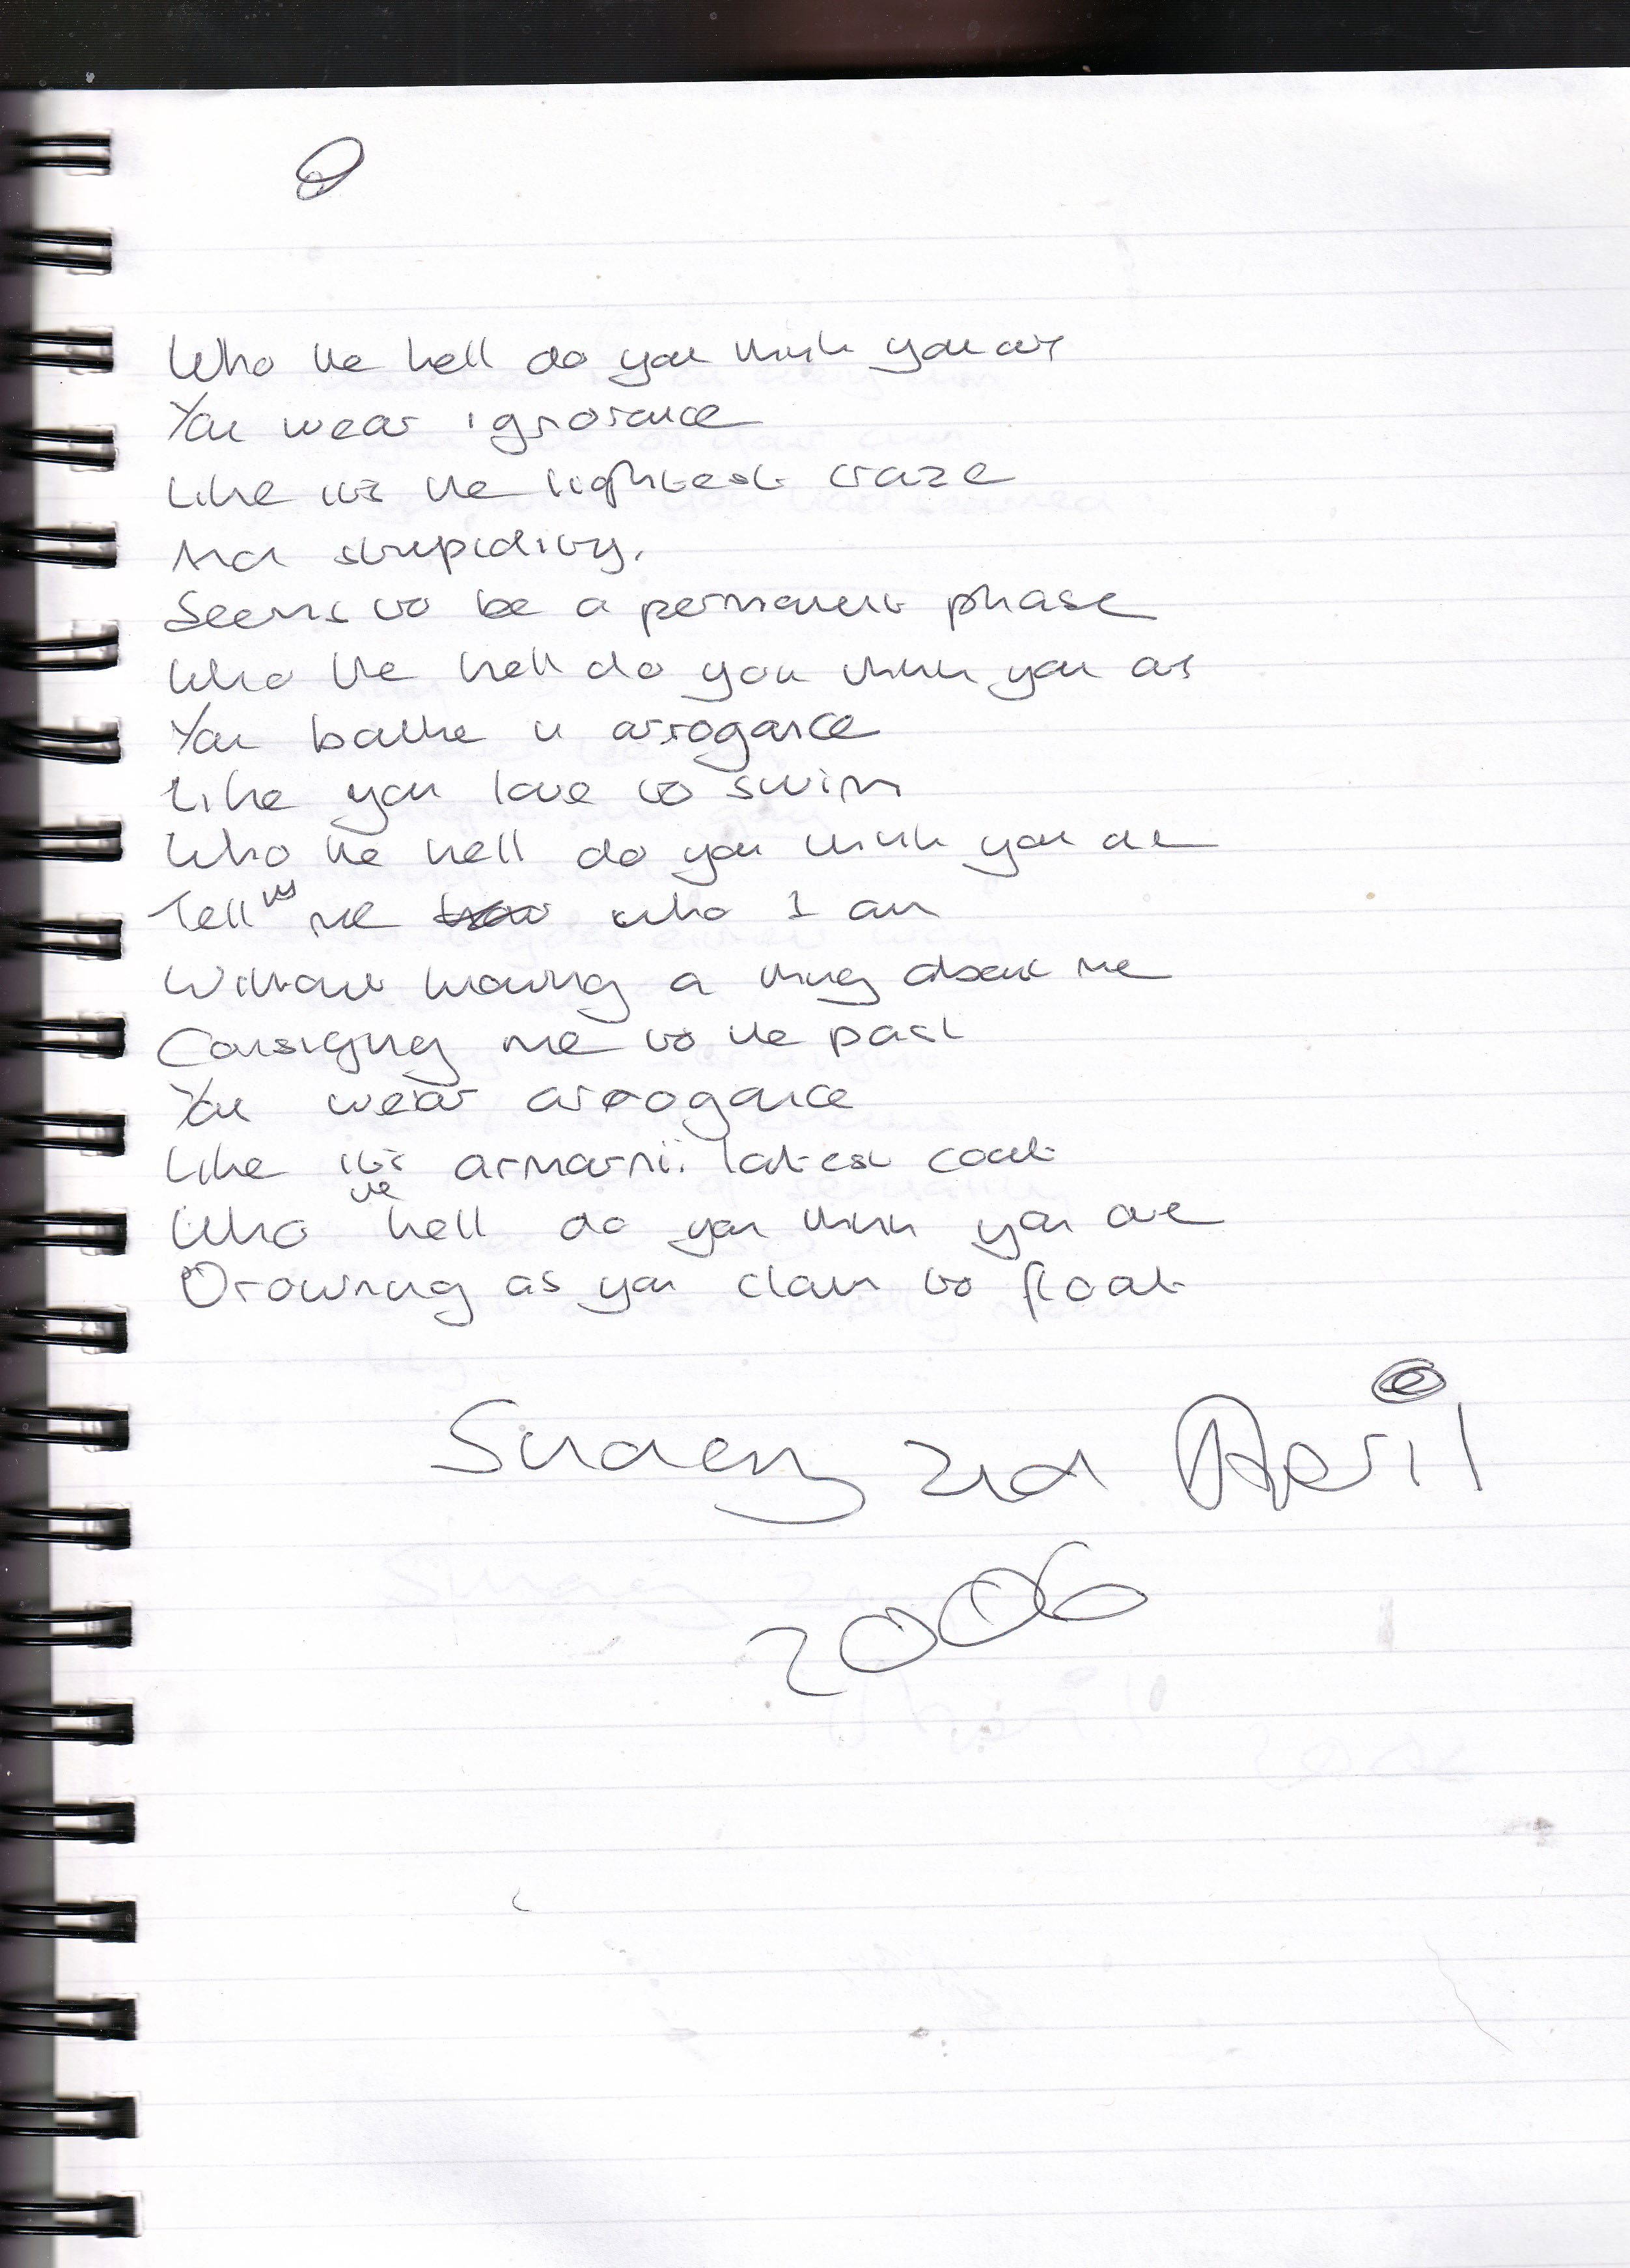 Who the hell do you think you are
You wear ignorance
Like its the lightest craze
And stupidity,
Seems to be a permanent phase
Who the hell do you think you are
You bathe in arrogance
Like you love to swim
Who the hell do you think you are
Tell me who I am
Without knowing a thing about me
Consigning me to the past
You wear arrogance
Like its armarni: latest coat
Who the hell do you think you are
Drowning as you claim to float
Sunday 2nd April
2006